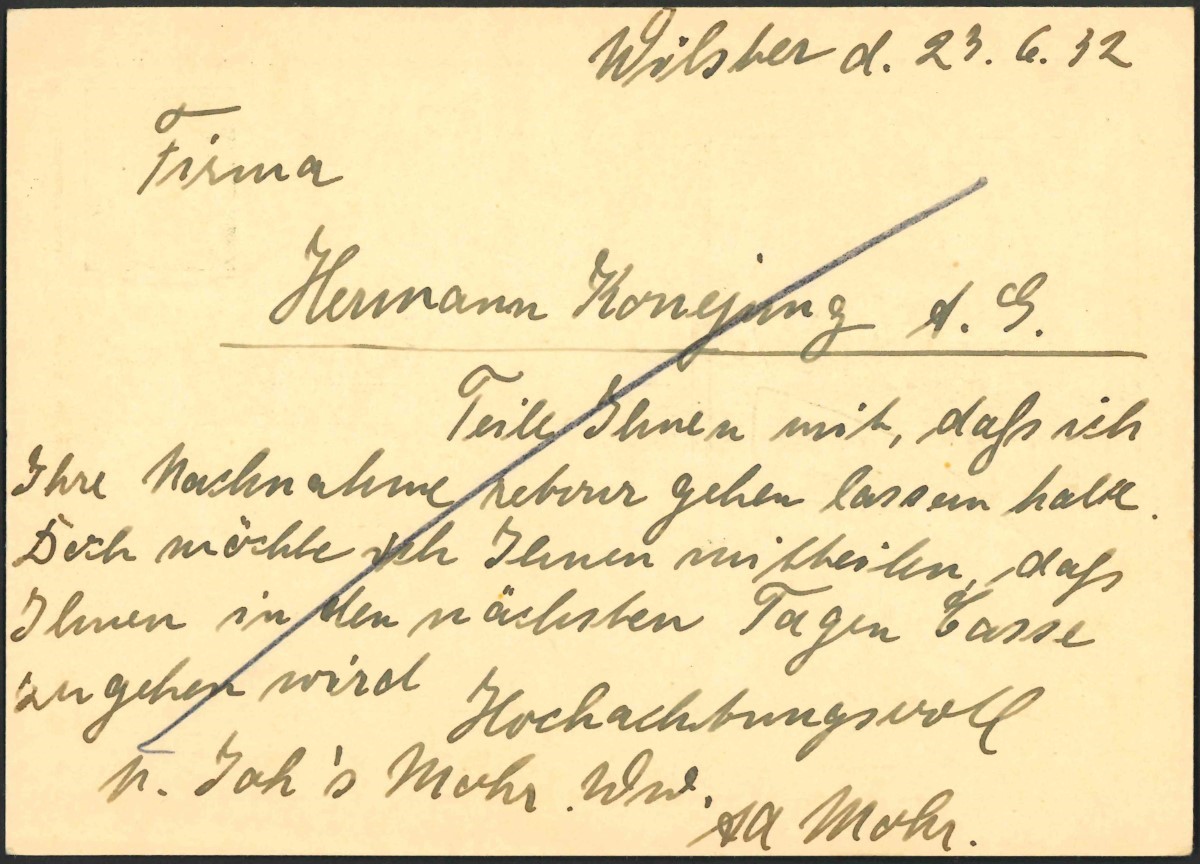 Wilster d. 23. 6. 32
Firma
Hermann Konejung A. G.
Teile Ihnen mit, daß ich
Ihre Nachnahme retour gehen lassen habe.
Doch möchte ich Ihnen mitteilen, daß
Ihnen in den nächsten Tagen Casse
zugehen wird
Hochachtungsvoll
Joh's Mohr. Ww.
Mohr.